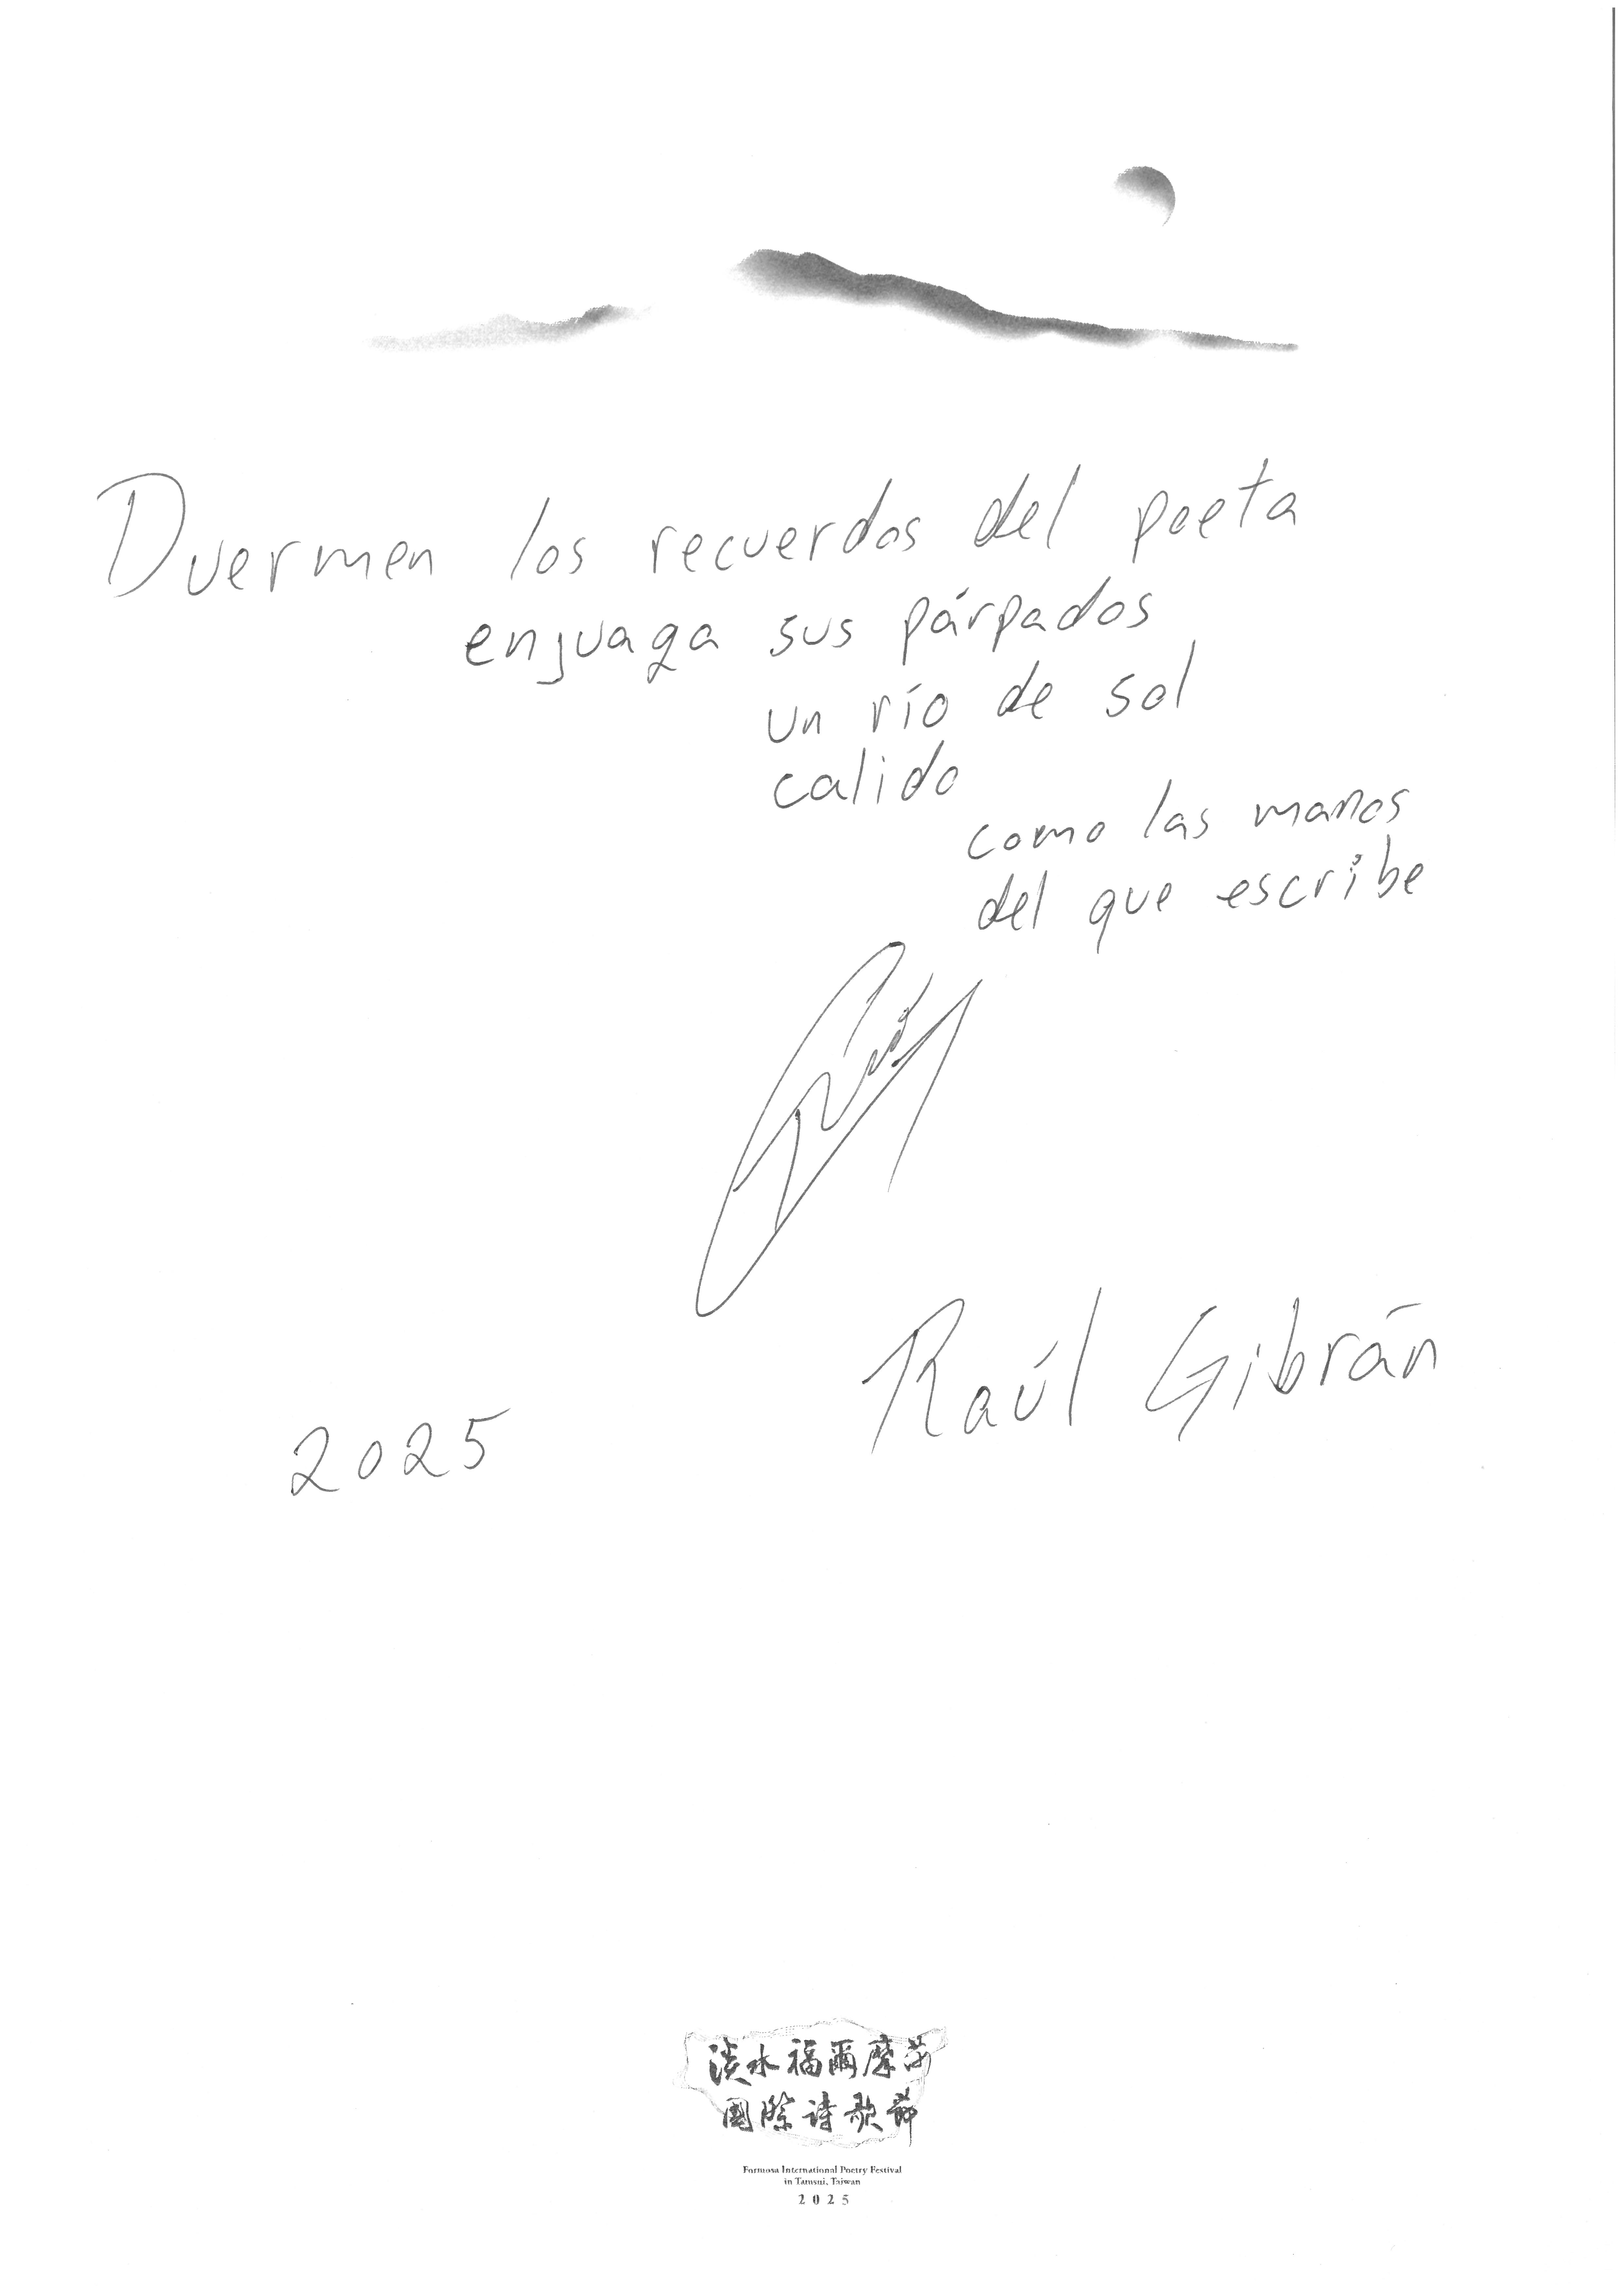 Duermen los recuerdos del poeta
enjuaga sus párpados
un río de sol
calido
como las manos
del que escribe
Raúl Gibrán
2025
淡水福爾摩莎
國際詩歌節
Formosa International Poetry Festival
in Tamsui, Taiwan
2025